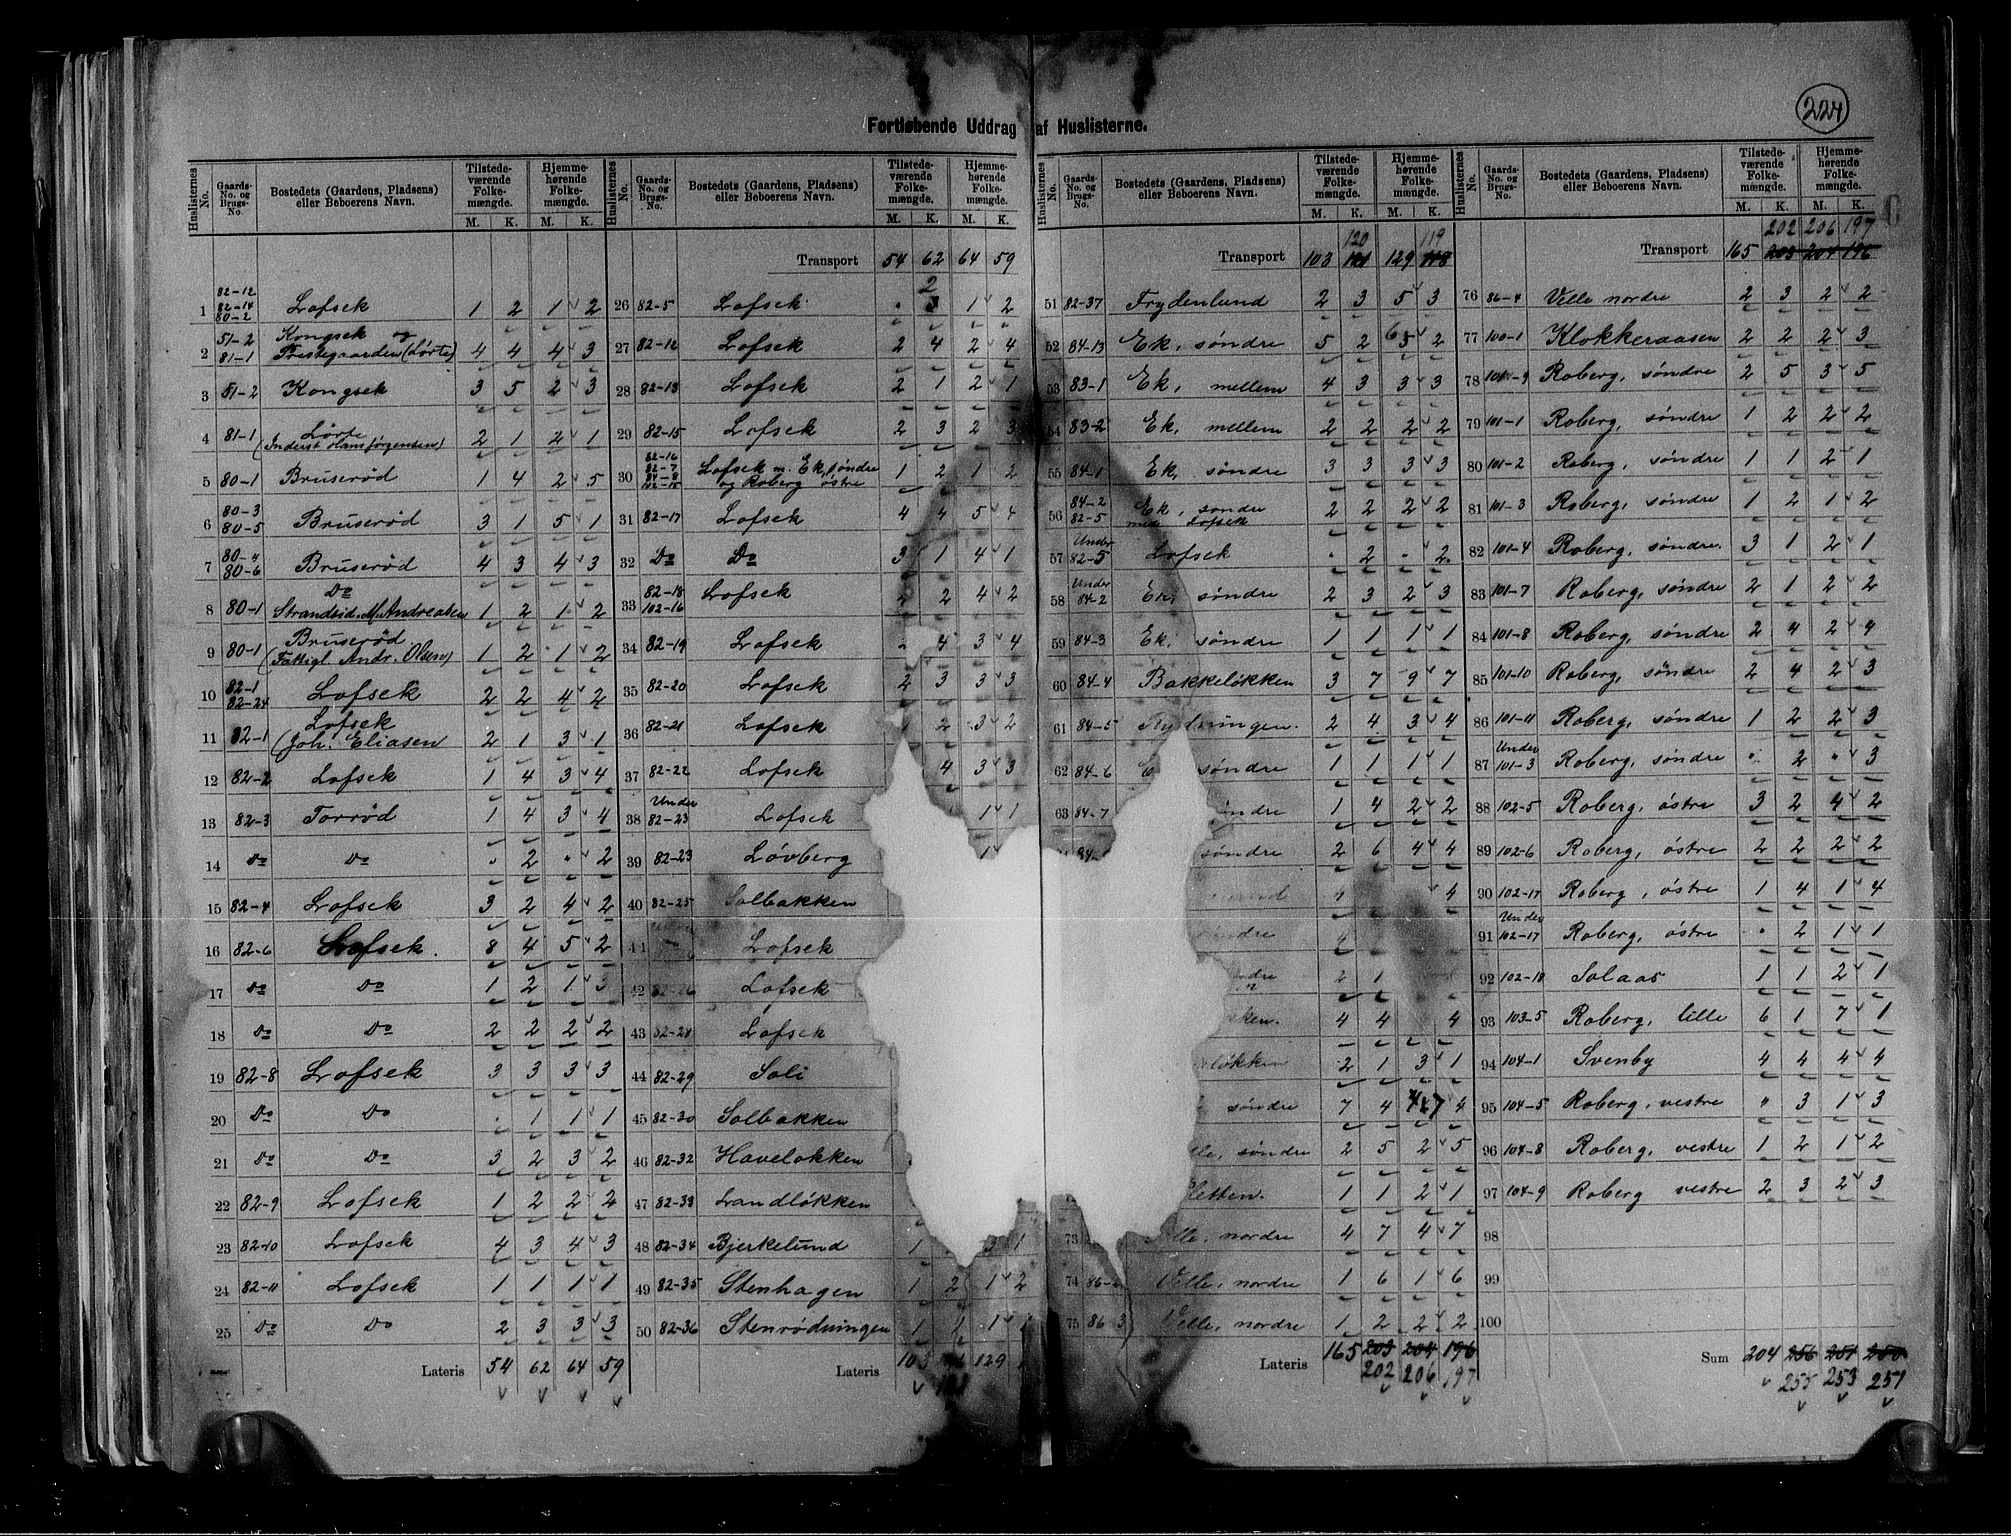 224
Fortløbende Uddrag af Huslisterne.
Huslisternes No. Gaards-No. og Brugs-No. Bostedets (Gaardens, Pladsens) eller Beboerens Navn. Tilstedeværende Folkemængde. M. K. Hjemmehørende Folkemængde. M. K.
1 82-12 82-14 80-2 Lofsek 1 2 1 2
2 51-2 81-1 Kongsek og Præstegaarden (Lørte) 4 4 4 3
3 51-2 Kongsek 3 5 2 3
4 81-1 Lørte (Inderst Hans Jørgensen) 2 1 2 1
5 80-1 Bruserød 1 4 2 5
6 80-3 80-5 Bruserød 3 1 5 1
7 80-4 80-6 Bruserød 4 3 4 3
8 80-1 Do Strandsid. M. Andreasen 1 2 1 2
9 80-1 Bruserød (Fattigl. Andr. Olsen) 1 2 1 2
10 82-1 82-24 Lofsek 2 2 4 2
11 82-1 Lofsek (Joh. Eliasen 2 1 3 1
12 82-2 Lofsek 1 4 3 4
13 82-3 Torrød 1 4 3 4
14 Do Do . 2 " 2
15 82-4 Lofsek 3 2 4 2
16 82-6 Lofsek. 8 4 5 2
17 Do Do 1 2 1 3
18 Do Do 2 2 2 2
19 82-8 Lofsek 3 3 3 3
20 Do Do . 1 1 1
21 Do Do 3 2 3 2
22 82-9 Lofsek 1 2 2 2
23 82-10 Lofsek 4 3 4 3
24 82-11 Lofsek 1 1 1 1
25 Do Do 2 3 3 3
Lateris 54 62 64 59
Huslisternes No. Gaards-No. og Brugs-No. Bostedets (Gaardens, Pladsens) eller Beboerens Navn. Tilstedeværende Folkemængde. M. K. Hjemmehørende Folkemængde. M. K.
Transport 54 62 64 59
26 82-5 Lofsek . 2 3 1 2
27 82-12 Lofsek 2 4 2 4
28 82-13 Lofsek 2 1 2 1
29 82-15 Lofsek 2 3 2 3
30 82-16 82-7 84-8 102-15 Lofsek m. Ek, søndre og Roberg østre 1 2 1 2
31 82-17 Lofsek 4 4 5 4
32 Do Do 3 1 4 1
33 82-18 102-16 Lofsek 2 2 4 2
34 82-19 Lofsek . 4 3 4
35 82-20 Lofsek 2 3 3 3
36 82-21 Lofsek 1 2 3 2
37 82-22 Lofsek 4 3 3
38 Under 82-23 Lofsek 1 1
39 82-23 Løvberg 1
40 82-25 Solbakken
41 Lofsek
42 82-26 Lofsek
43 82-28 Lofsek
44 82-29 Soli
45 82-30 Solbakken
46 82-32 Haveløkken
47 82-33 Landløkken
48 82-34 Bjerkelund 1 3 1
49 82-35 Stenhagen 1 2 1 2
50 82-36 Stenrødningen 1 1 1
Lateris 103 129
Huslisternes No. Gaards-No. og Brugs-No. Bostedets (Gaardens, Pladsens) eller Beboerens Navn. Tilstedeværende Folkemængde. M. K. Hjemmehørende Folkemængde. M. K.
120 119
Transport 103 121 129 118
51 82-37 Frydenlund 2 3 5 3
52 84-13 Ek, søndre 5 2 6 5 2
53 83-1 Ek, mellem 4 3 3 3
54 83-2 Ek, mellem 2 2 2 2
55 84-1 Ek, søndre 3 3 3 3
56 84-2 82-5 Ek, søndre med Lofsek 2 2 2 2
57 Under 82-5 Lofsek . 2 . 2
58 Under 84-2 Ek, søndre 2 3 2 3
59 84-3 Ek, søndre 1 1 1 1
60 84-4 Bakkeløkken 3 7 9 7
61 84-5 Rydningen. 2 4 3 4
62 84-6 søndre 1 1 1 1
63 84-7 ndre 1 4 2 2
84- søndre 2 6 4 4
4 4
ndre 4
ndre 2 1
ken. 4 4 4
løkken 2 1 3 1
søndre 7 4 7 4
lle, søndre 2 5 2 5
letten. 1 1 2 1
73 lle, nordre 4 7 4 7
74 86- Velle, nordre 1 6 1 6
75 86 3 Velle, nordre 1 2 2 2
Lateris 165 203 204 196
202 206 197
Huslisternes No. Gaards-No. og Brugs-No. Bostedets (Gaardens, Pladsens) eller Beboerens Navn. Tilstedeværende Folkemængde. M. K. Hjemmehørende Folkemængde. M. K.
202 206 197
Transport 165 203 204 196
76 86-4 Velle nordre 2 3 2 2
77 100-1 Klokkeraasen 2 2 2 3
78 101-9 Roberg, søndre 2 5 3 5
79 101-1 Roberg, søndre 1 2 2 2
80 101-2 Roberg, søndre 1 1 2 1
81 101-3 Roberg, søndre 1 2 1 2
82 101-4 Roberg, søndre. 3 1 2 1
83 101-7 Roberg, søndre 2 1 2 2
84 101-8 Roberg, søndre 2 4 2 4
85 101-10 Roberg, søndre 2 4 2 3
86 101-11 Roberg, søndre 1 2 2 3
87 Under 101-3 Roberg, søndre " 2 " 3
88 102-5 Roberg, østre 3 2 4 2
89 102-6 Roberg, østre 2 2 2 2
90 102-17 Roberg, østre 1 4 1 4
91 Under 102-17 Roberg, østre . 2 1 1
92 102-18 Solaas 1 1 2 1
93 103-5 Roberg, lille 6 1 7 1
94 104-1 Svenby 4 4 4 4
95 104-5 Roberg, vestre " 3 1 3
96 104-8 Roberg, vestre 1 2 1 2
97 104-9 Roberg vestre 2 3 2 3
98
99
100
Sum 204 256 251 250
255 253 251